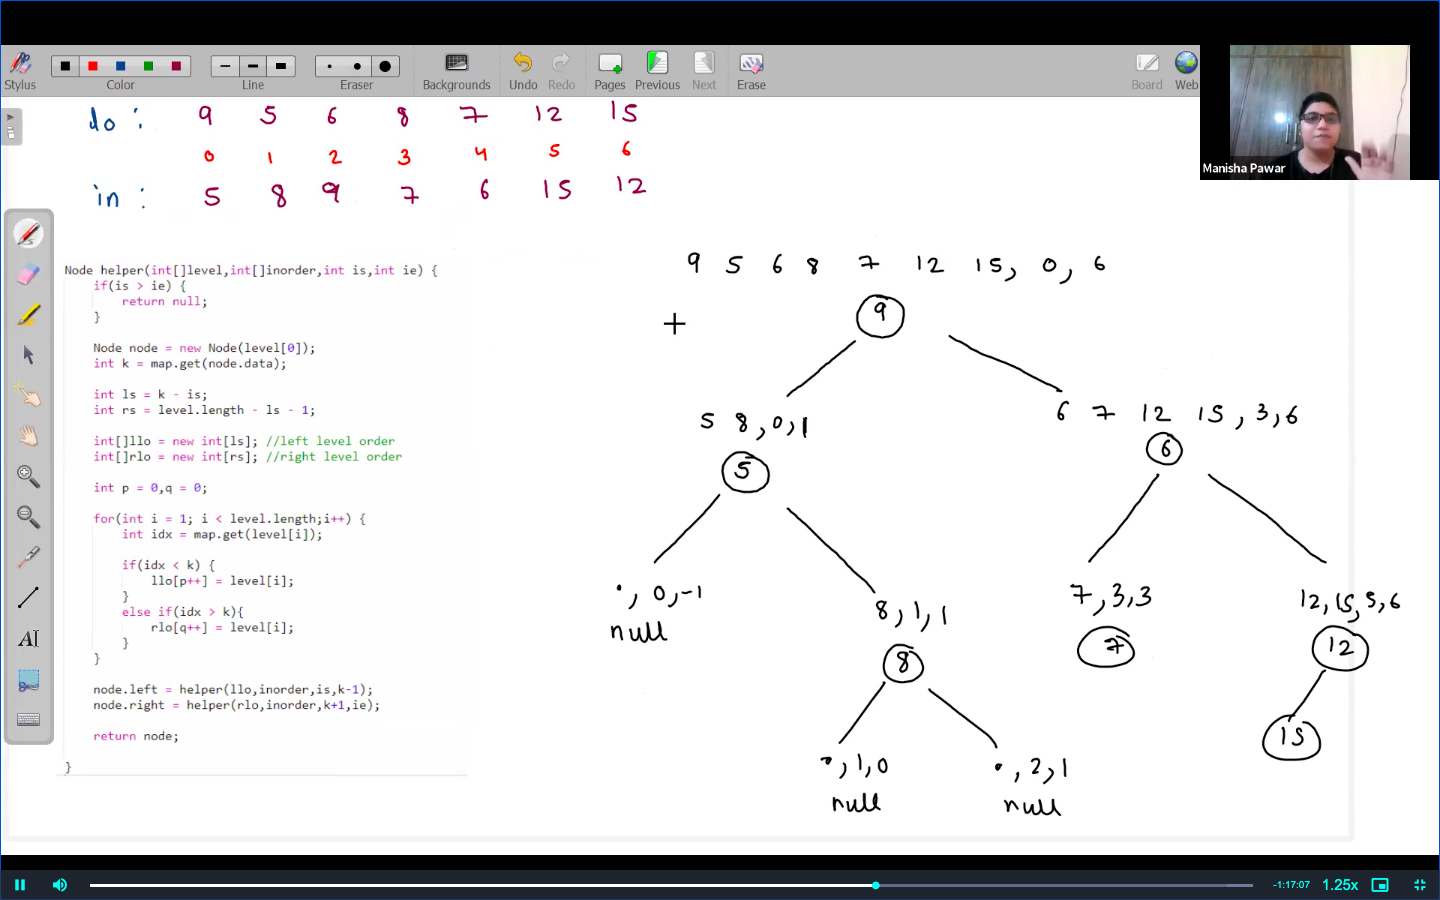 Stylus Color Line Eraser Backgrounds Undo Redo Pages Previous Next Erase Board Web
Manisha Pawar
lo : 9 5 6 8 7 12 15
0 1 2 3 4 5 6
in : 5 8 9 7 6 15 12
Node helper(int[]level,int[]inorder,int is,int ie) {
if(is > ie) {
return null;
}
Node node = new Node(level[0]);
int k = map.get(node.data);
int ls = k - is;
int rs = level.length - ls - 1;
int[]llo = new int[ls]; //left level order
int[]rlo = new int[rs]; //right level order
int p = 0,q = 0;
for(int i = 1; i < level.length;i++) {
int idx = map.get(level[i]);
if(idx < k) {
llo[p++] = level[i];
}
else if(idx > k){
rlo[q++] = level[i];
}
}
node.left = helper(llo,inorder,is,k-1);
node.right = helper(rlo,inorder,k+1,ie);
return node;
}
9 5 6 8 7 12 15, 0, 6
9
5 8, 0, 1
6 7 12 15, 3, 6
5
6
., 0, -1
null
8, 1, 1
7, 3, 3
12, 15, 5, 6
8
7
12
15
., 1, 0
null
., 2, 1
null
AI
-1:17:07 1.25x